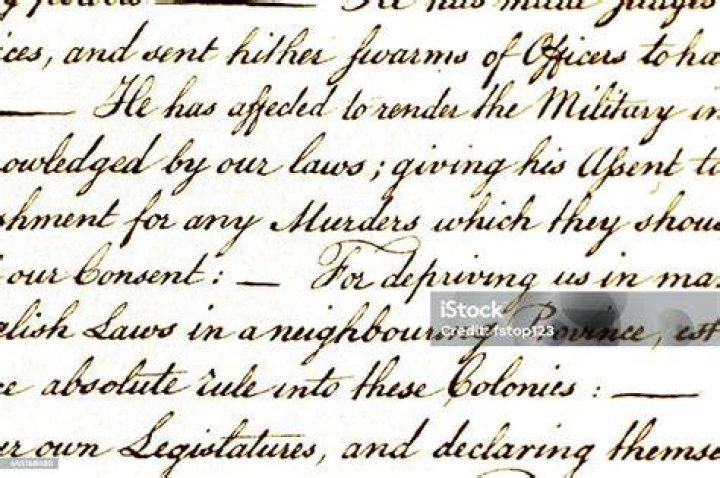 He has made Judges
ices, and sent hither swarms of Officers to ha
He has affected to render the Military in
owledged by our laws; giving his Assent to
shment for any Murders which they shou
our Consent: — For depriving us in ma
glish Laws in a neighbouring Province, est
absolute rule into these Colonies: —
er own Legislatures, and declaring themse
iStock
Credit: fstop123